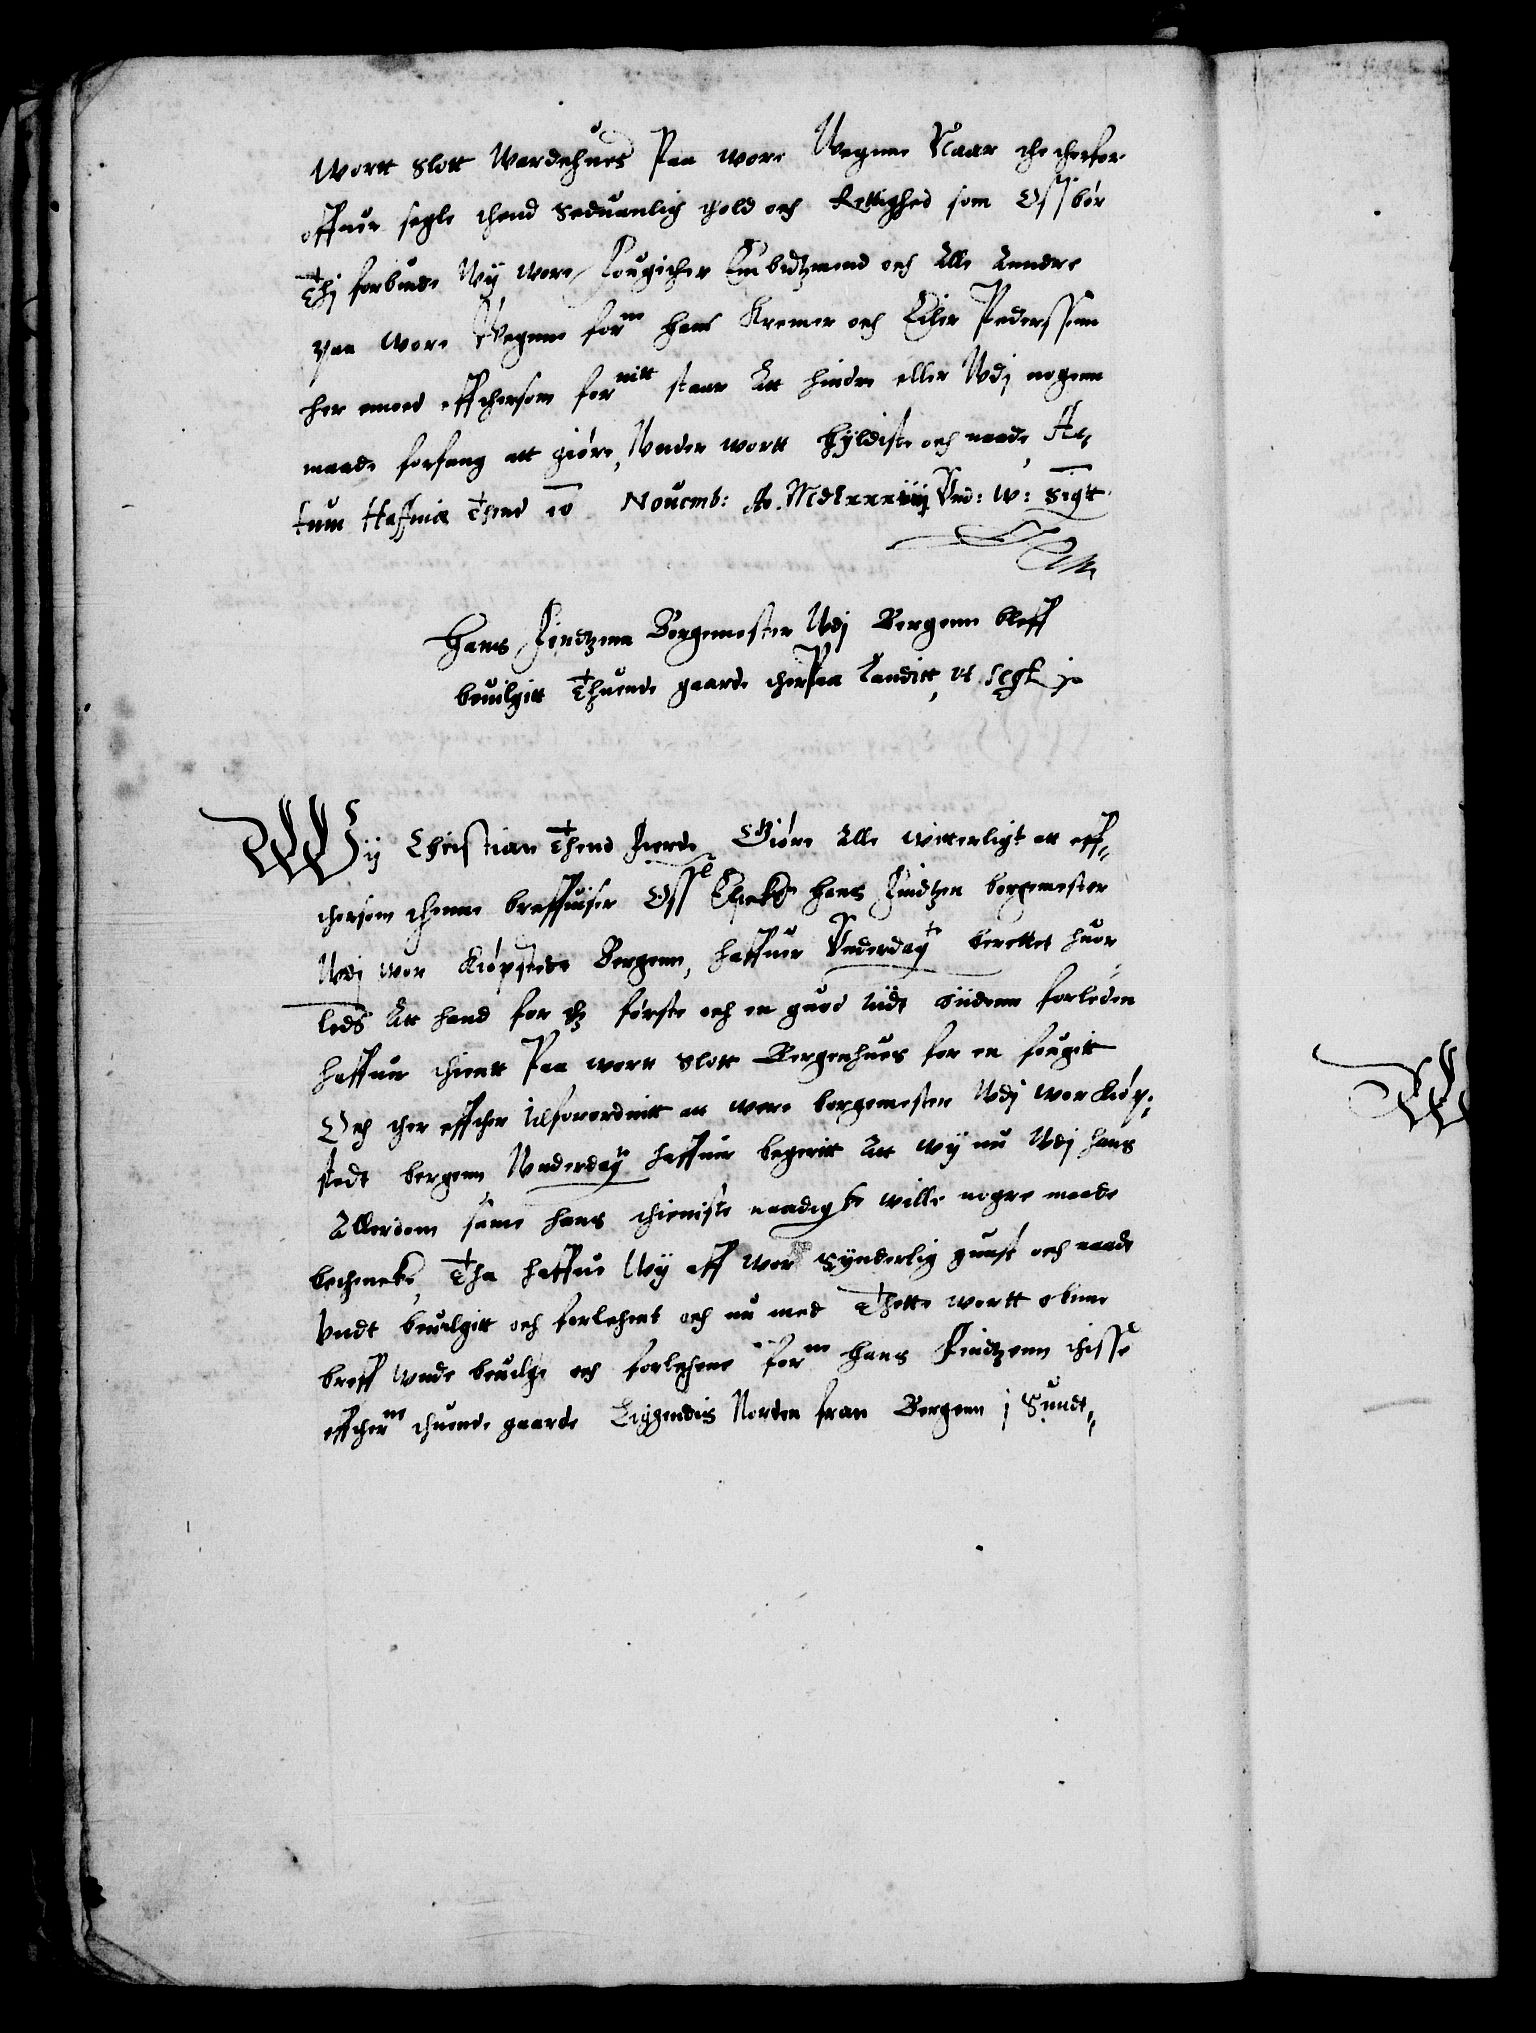 wortt Slott Wardehues Paa wore Wegnne Naar the therfor
offuer segle thend seduanlig told och Rettighed som Oss bör
Thj forbiude Wij wore Fougither Embidtzmend och Alle Anndre
paa wore Wegnne for:ne Hans Kremer och Eiler Pederssenn
her emod effthersom for:nitt staar Att hindre eller Udj nogenn
maade forfang att giöre, Under wortt hÿldiste och naade, Ac,
tum Haffniæ Thend 10 Nouemb: Ao. Mdlxxxxiiij Und: w: Sigtt

Hans Jendtzenn Borgemester Udj Bergenn bleff
beuilgitt Thuende gaarde ther Paa Landitt, vt seqt

Wij Christian Thend Fierde Giöre Alle witterligt att eff,,
thersom thenne breffuiser Oss El: Hans Jendtzen borgemester
Udj wor Kiöpstedt Bergenn, haffuer Underdag:te berettet huor
leds Att hand for första och en guod tidt siidenn forleden
haffuer thientt Paa wortt Slott Bergenhues for en fougitt
Och ther effther tilforordnitt att were borgemester Udj wor Kiöp,
stedt bergenn Underdag:te haffuer begeritt Att wij nu Udj hans
Allerdom same hans thieniste naadigste wille nogre maade
bethencke, Tha haffue Wij aff wor Synderlig gunst och naade
Undt beuilgitt och forlehent och nu med Thette wortt obnne
breff unde beuilge och forlehene for:ne Hans Jendtzenn thisse
effther:ne thuende gaarde Liggendis Norden fraa Bergenn j Sundt,,